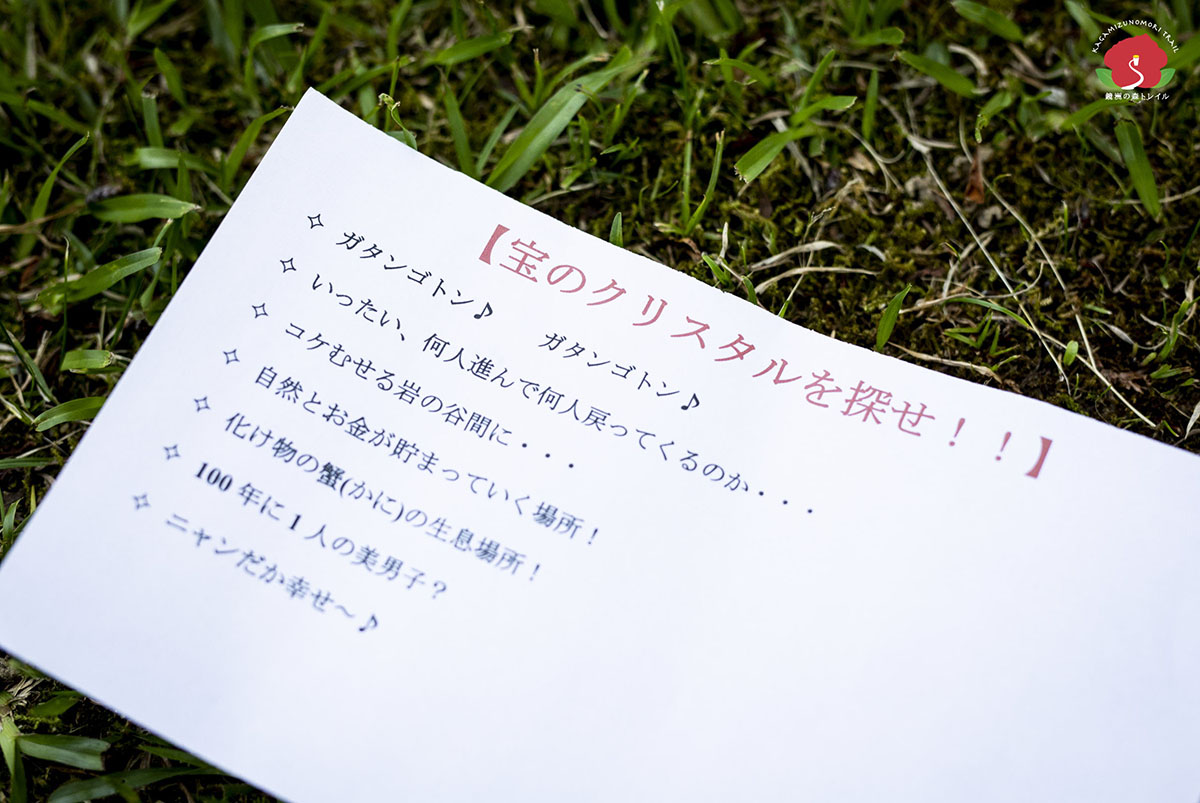 KAGAMIZUNOMORI TRAIL
鏡洲の森トレイル
【宝のクリスタルを探せ！！】
✧ ガタンゴトン♪　ガタンゴトン♪
✧ いったい、何人進んで何人戻ってくるのか・・・
✧ コケむせる岩の谷間に・・・
✧ 自然とお金が貯まっていく場所！
✧ 化け物の蟹(かに)の生息場所！
✧ 100年に1人の美男子？
✧ ニャンだか幸せ～♪